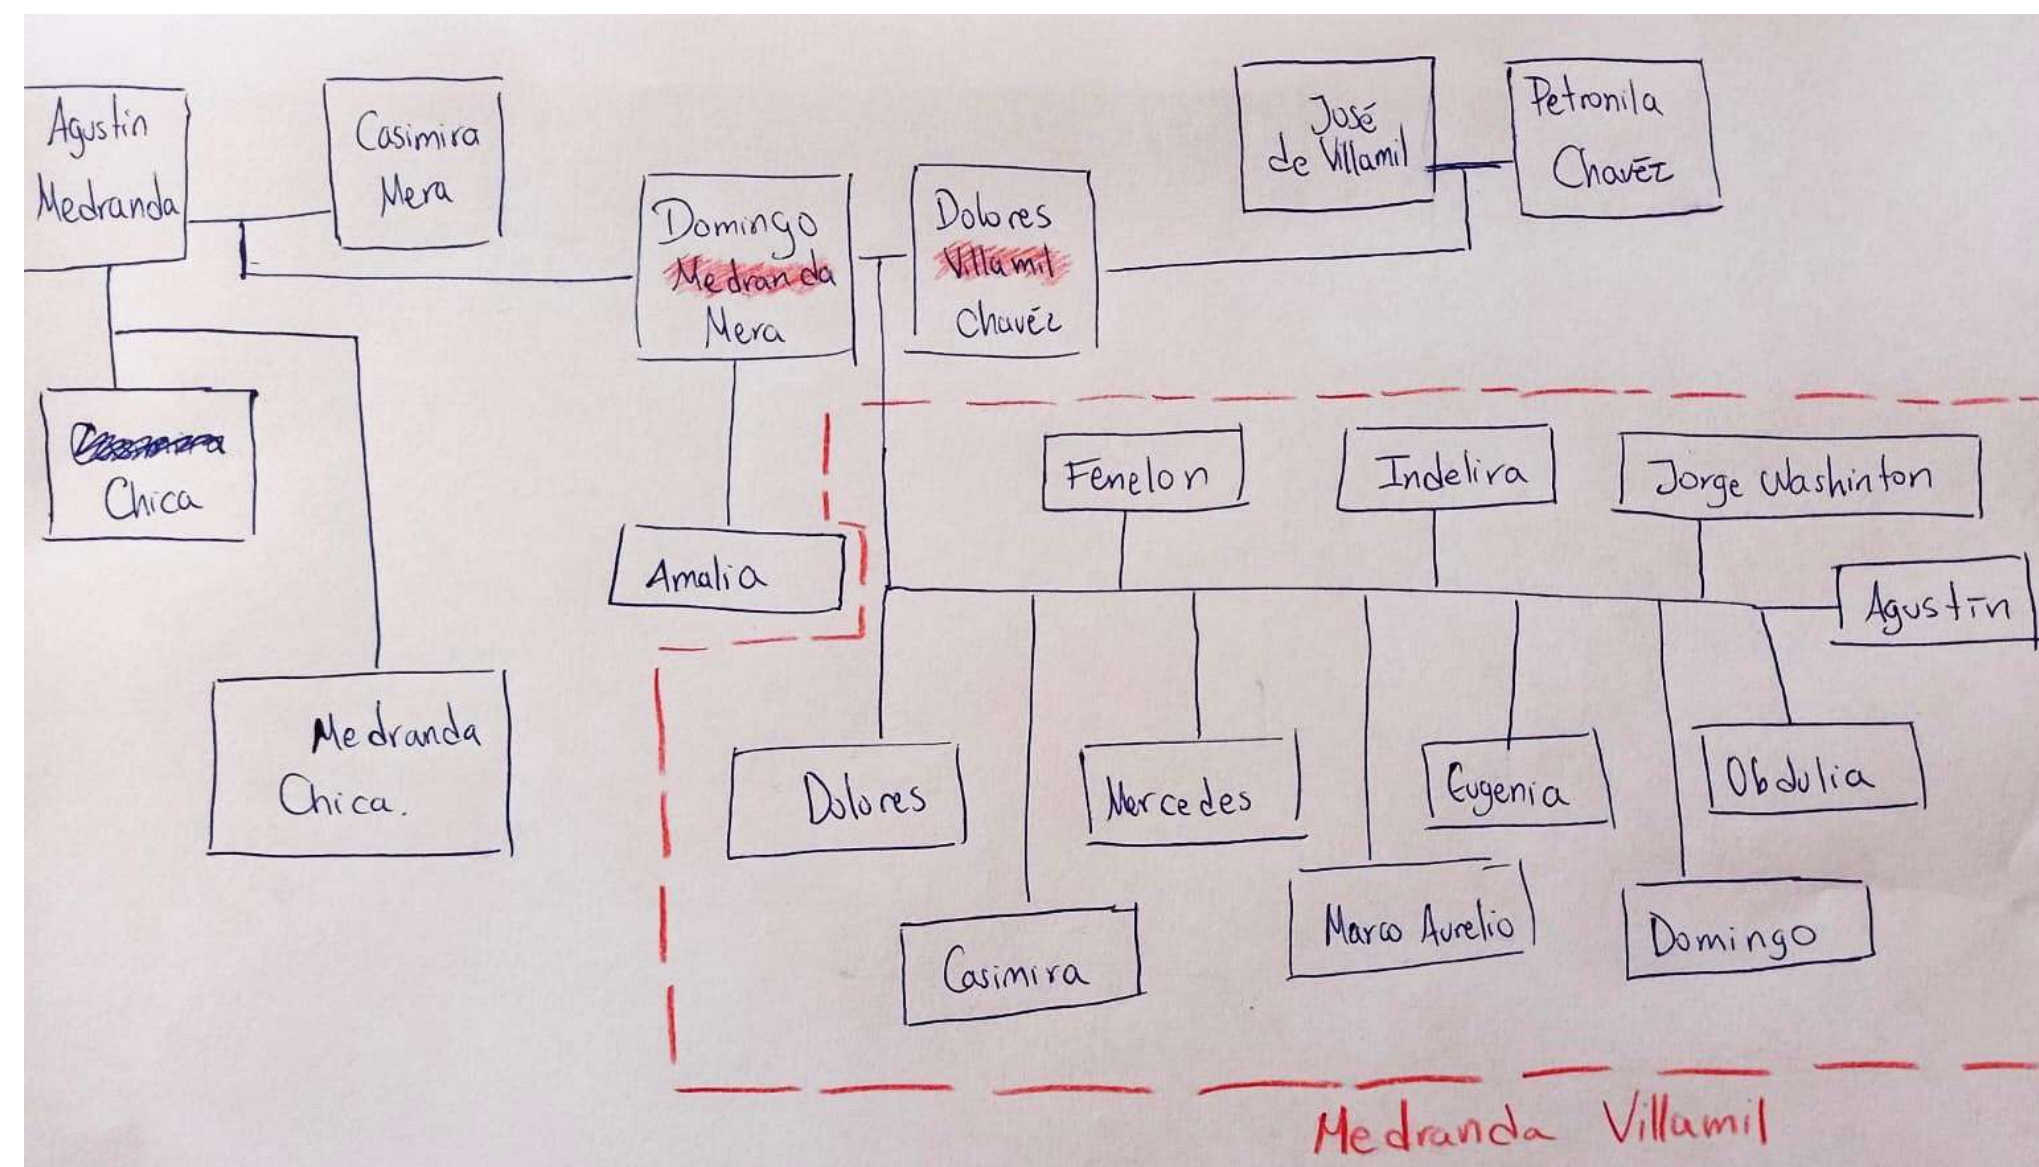 Agustin
Medranda
Casimira
Mera
Domingo
Medranda
Mera
Dolores
Villamil
Chavéz
José
de Villamil
Petronila
Chavéz
Chica
Medranda
Chica.
Amalia
Fenelon
Indelira
Jorge Washinton
Agustín
Dolores
Mercedes
Eugenia
Obdulia
Casimira
Marco Aurelio
Domingo
Medranda Villamil